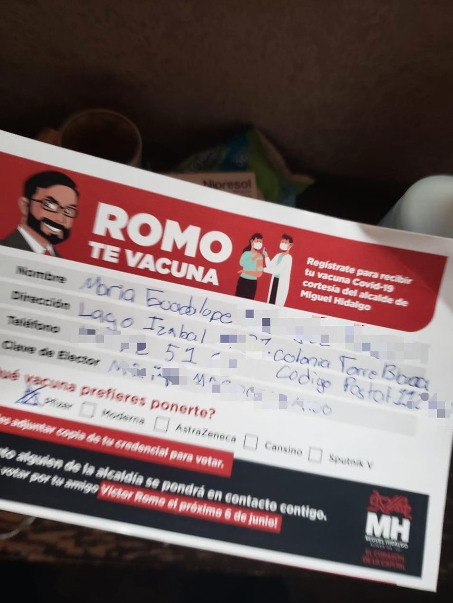 Nipresol
ROMO
TE VACUNA
Regístrate para recibir
tu vacuna Covid-19
cortesía del alcalde de
Miguel Hidalgo
Nombre María Guadalupe
Dirección Lago Izabal Colonia Torre Blanca
Teléfono 51 Codigo Postal 112
Clave de Elector
Qué vacuna prefieres ponerte?
Pfizer Moderna AstraZeneca Cansino Sputnik V
es adjuntar copia de tu credencial para votar.
nto alguien de la alcaldía se pondrá en contacto contigo.
votar por tu amigo Víctor Romo el próximo 6 de junio!
MH
MIGUEL HIDALGO
EL CORAZÓN
DE LA CAPITAL